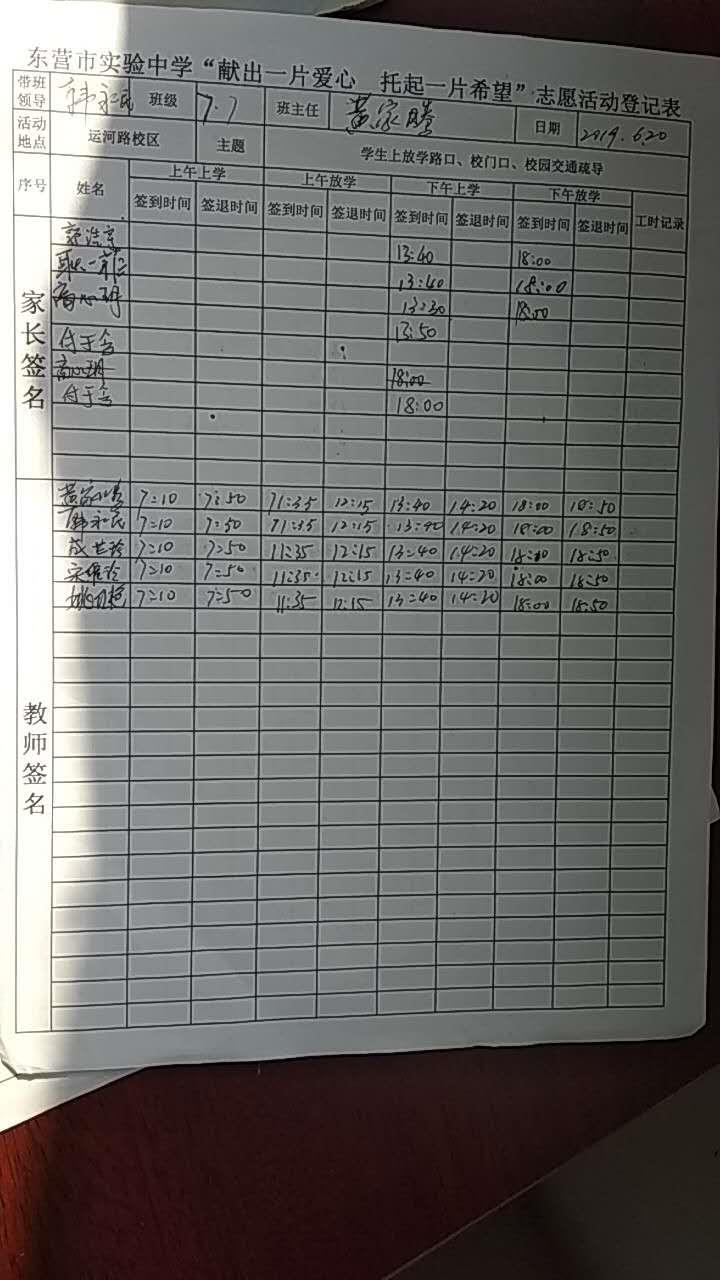 东营市实验中学“献出一片爱心 托起一片希望”志愿活动登记表
带班领导 韩永民 班级 7.7 班主任 黄家腾 日期 2019.6.20
活动地点 运河路校区 主题 学生上放学路口、校门口、校园交通疏导
序号 姓名 上午上学 上午放学 下午上学 下午放学 工时记录
签到时间 签退时间 签到时间 签退时间 签到时间 签退时间 签到时间 签退时间
家长签名
13:40 18:00
13:40 18:00
13:30 18:00
付于合 13:50
18:00
付于合 18:00
教师签名
黄家腾 7:10 7:50 11:35 12:15 13:40 14:20 18:00 18:50
韩永民 7:10 7:50 11:35 12:15 13:40 14:20 18:00 18:50
7:10 7:50 11:35 12:15 13:40 14:20 18:00 18:50
7:10 7:50 11:35 12:15 13:40 14:20 18:00 18:50
7:10 7:50 11:35 12:15 13:40 14:20 18:00 18:50